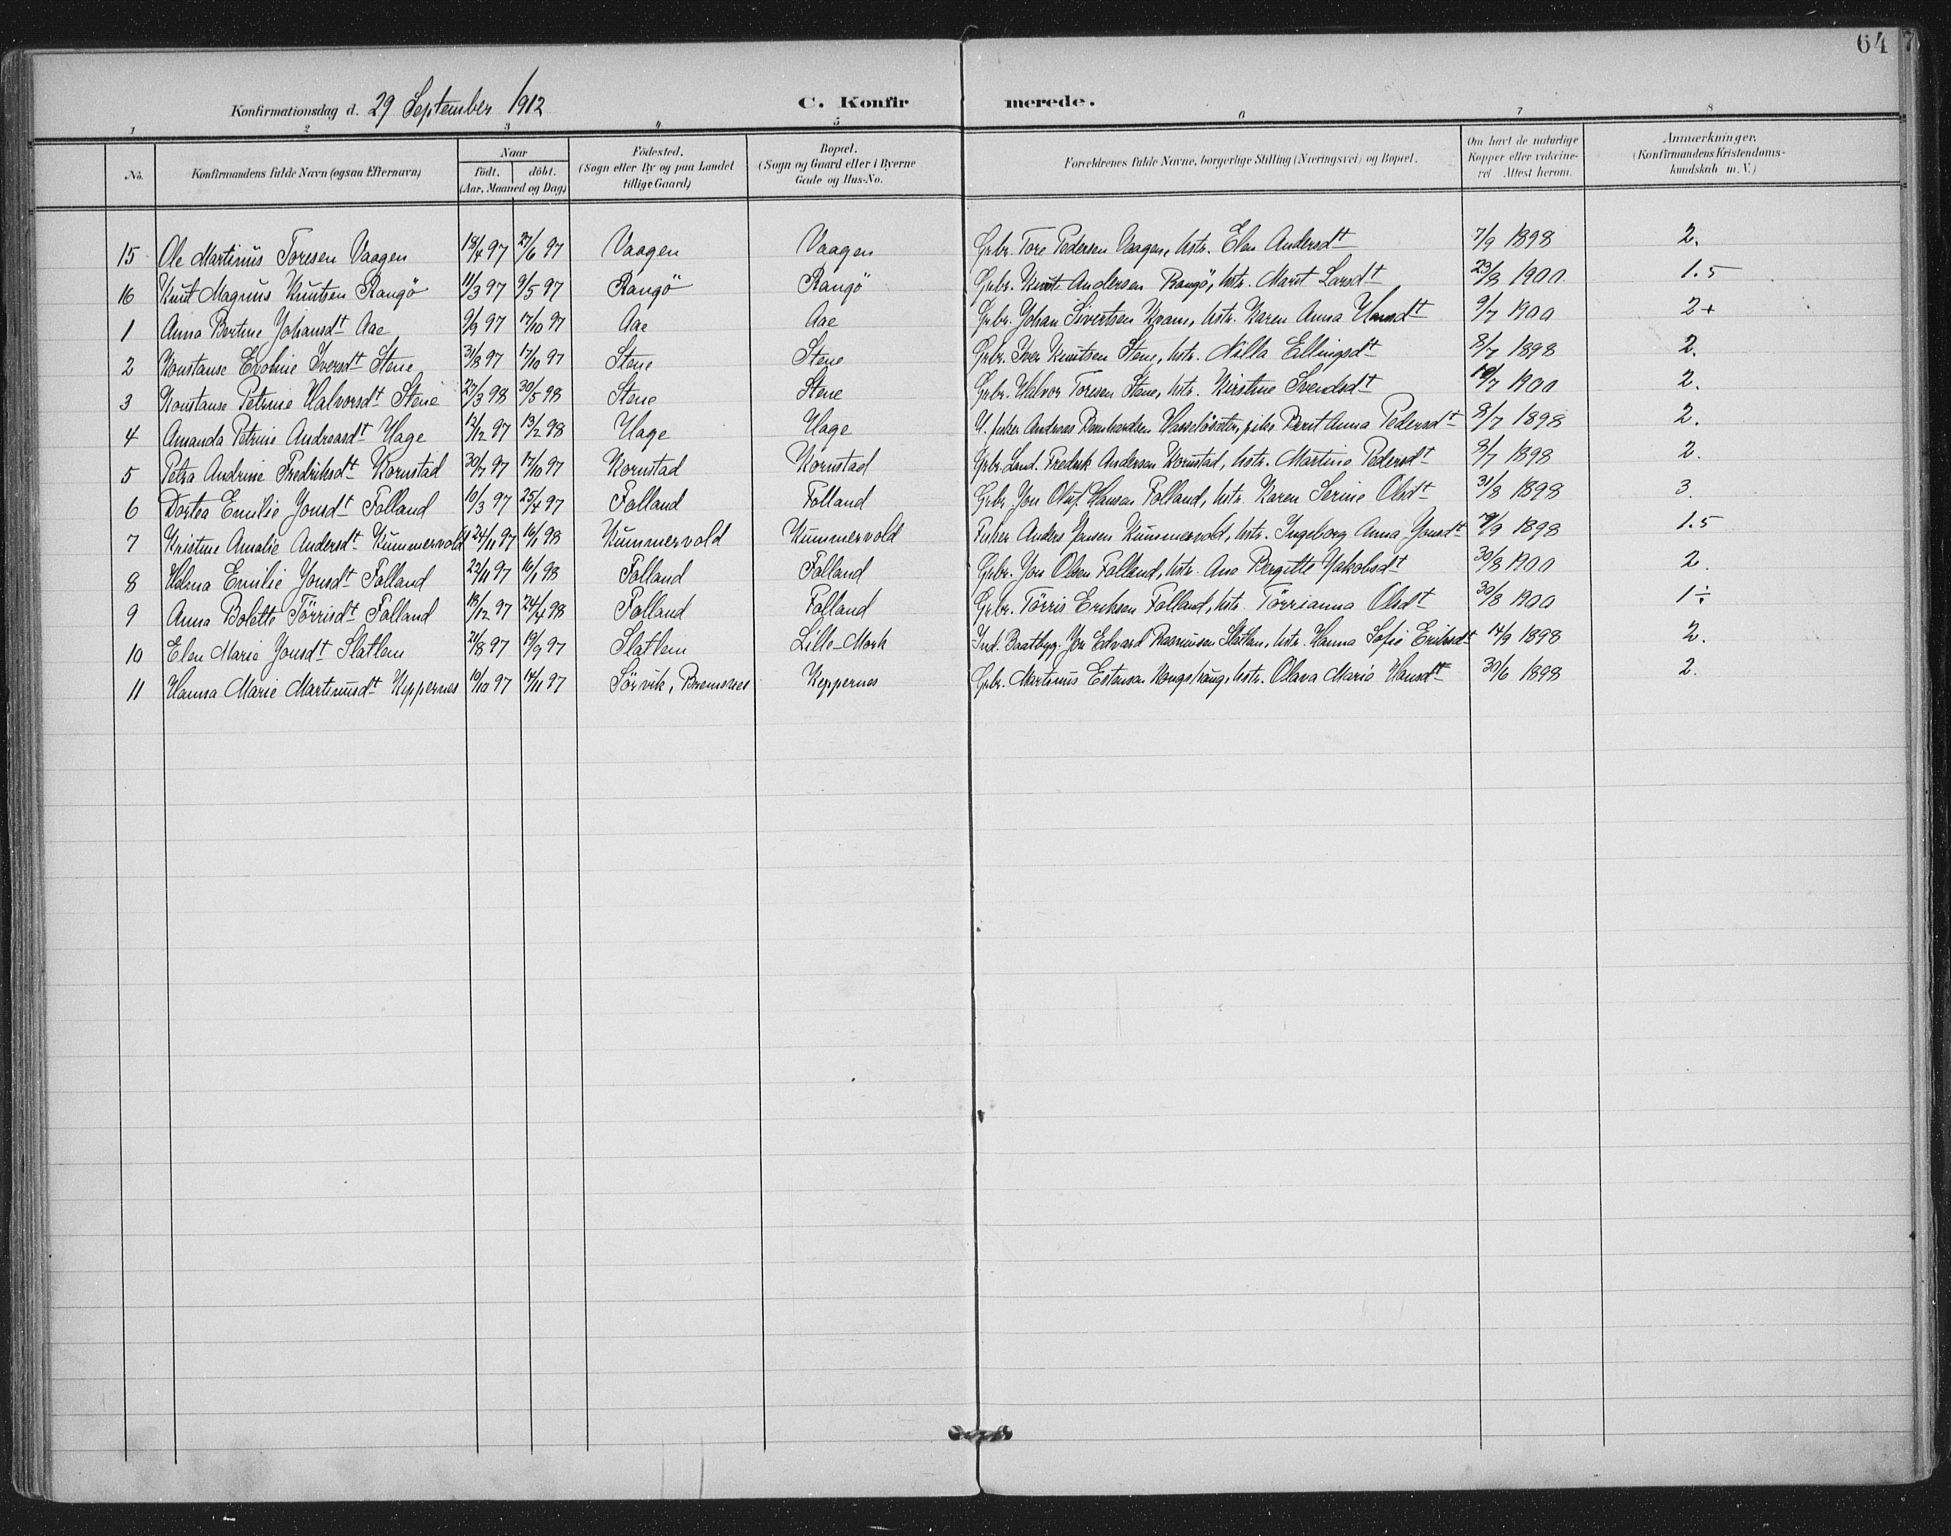 64
Konfirmationsdag d. 29 September 1912 C. Konfir merede.
1 2 3 4 5 6 7 8
No. Konfirmandens fulde Navn (ogsaa Efternavn) Naar født. døbt. (Aar, Maaned og Dag) Fødested. (Sogn eller By og paa Landet tillige Gaard) Bopæl. (Sogn og Gaard eller i Byerne Gade og Hus-No. Forældrenes fulde Navne, borgerlige Stilling (Næringsvei) og Bopæl. Om havt de naturlige Kopper eller vakcineret Attest herom. Anmærkninger. (Konfirmandens Kristendomskundskab m. V.)
15 Ole Martinus Toresen Vaagen 18/4 97 27/6 97 Vaagen Vaagen Gbr. Tore Pedersen Vaagen, hstr. Elen Andersdt 7/9 1898 2.
16 Knut Magnus Knutsen Rangö 11/3 97 9/5 97 Rangö Rangö Gbr. Knut Andersen Rangö, hstr. Marit Larsdt 23/8 1900 1.5
1 Anna Bertine Johansdt Aae 9/9 97 17/10 97 Aae Aae Gbr. Johan Sivertsen hstr. Karen Anna 9/7 1900 2+
2 Konstanse Evoline Iversdt Stene 31/8 97 17/10 97 Stene Stene Gbr. Iver Knutsen Stene, hstr. Nilla Ellingsdt 8/7 1898 2.
3 Konstanse Petrine Halvorsdt Stene 27/3 98 30/5 98 Stene Stene Gbr. Halvor Toresen Stene, hstr. Kirstine Svendsdt 10/7 1900 2.
4 Amanda Petrine Andreasdt Hage 12/12 97 13/2 98 Hage Hage Andreas pike Berit Anna Pedersdt 8/7 1898 2.
5 Petra Andrine Fredriksdt Kornstad 30/7 97 17/10 97 Kornstad Kornstad Gbr. Fredrik Andersen Kornstad, hstr. Martine Pedersdt 8/7 1898 2.
6 Dortea Emilie Jonsdt Folland 10/3 97 25/4 97 Folland Folland Gbr. Jon Oluf Hansen Folland, hstr. Karen Serine Olsdt 31/8 1898 3.
7 Kristine Amalie Andersdt Kummervold 24/11 97 16/1 98 Kummervold Kummervold Fisker Anders Jonsen Kummervold, hstr. Ingeborg Anna Jonsdt /9 1898 1.5
8 Halma Emilie Jonsdt Folland 22/11 97 16/1 98 Folland Folland Gbr. Jon Olsen Folland, hstr. Ane Bergitte Jakobsdt 30/8 1900 2.
9 Anna Bolette Törrisdt Folland 18/12 97 24/4 98 Folland Folland Gbr. Törris Eriksen Folland, hstr. Törrianna Olsdt 30/8 1900 1÷
10 Elen Marie Jonsdt Slatlem 21/8 97 19/9 97 Slatlem Lille-Mork Ind. Baatbyg. Jon Edvard Rasmussen Slatlem, hstr. Hanna Sofie Eriksdt 14/9 1898 2.
11 Hanna Marie Martinusdt Keppernes 10/10 97 14/11 97 Sörvik, Bremsnes Keppernes Gbr. Martinus Estensen Kongshaug, hstr. Olava Marie Hansdt 30/6 1898 2.